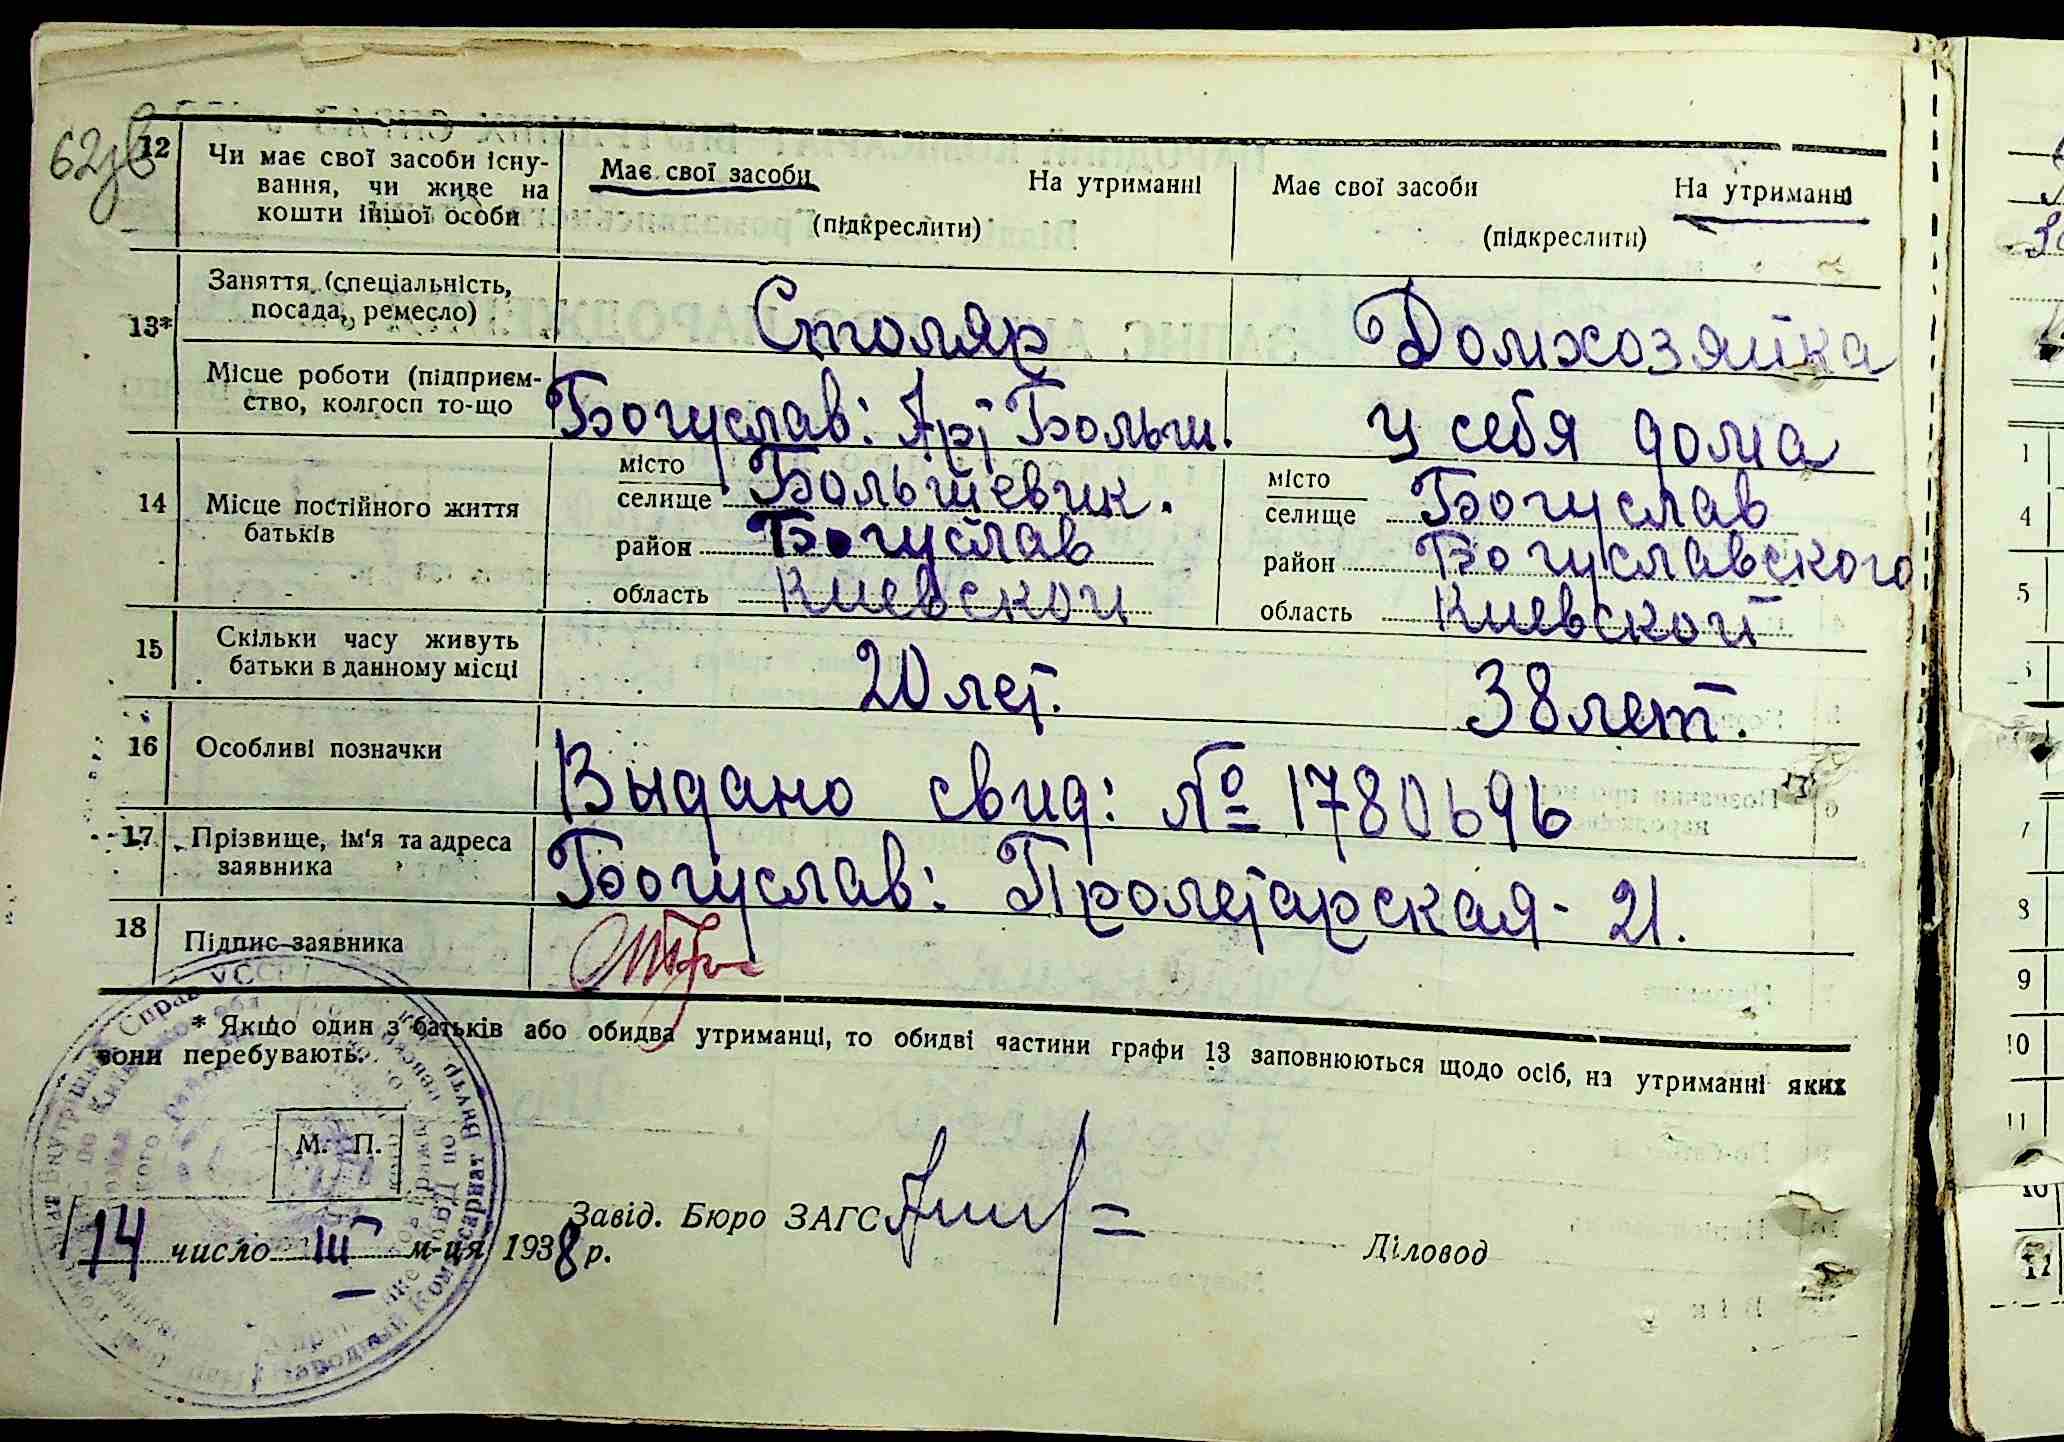 62зв
12 Чи має свої засоби існу-
вання, чи живе на
кошти іншої особи
Має свої засоби На утриманні
(підкреслити)
Має свої засоби На утриманні
(підкреслити)
13* Заняття (спеціальність,
посада, ремесло)
Столяр Домхозяйка
Місце роботи (підприєм-
ство, колгосп то-що
Богуслав: Больш. у себя дома
14 Місце постійного життя
батьків
місто
селище Большевик.
район Богуслав
область Киевской
місто
селище Богуслав
район Богуславского
область Киевской
15 Скільки часу живуть
батьки в данному місці
20 лет. 38 лет.
16 Особливі позначки
Выдано свид: № 1780696
17 Прізвище, ім'я та адреса
заявника
Богуслав: Пролетарская - 21.
18 Підпис заявника
* Якщо один з батьків або обидва утриманці, то обидві частини графи 13 заповнюються щодо осіб, на утриманні яких
вони перебувають.
М. П.
Завід. Бюро ЗАГС
Діловод
14 число III м-ця 1938 р.
1
4
5
7
8
9
10
11
10
11